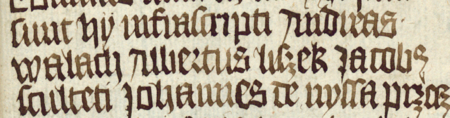 sunt hij infrascripti Andreas
walach Albertus liszek Jacobs
sculteti Johannes de nyssa